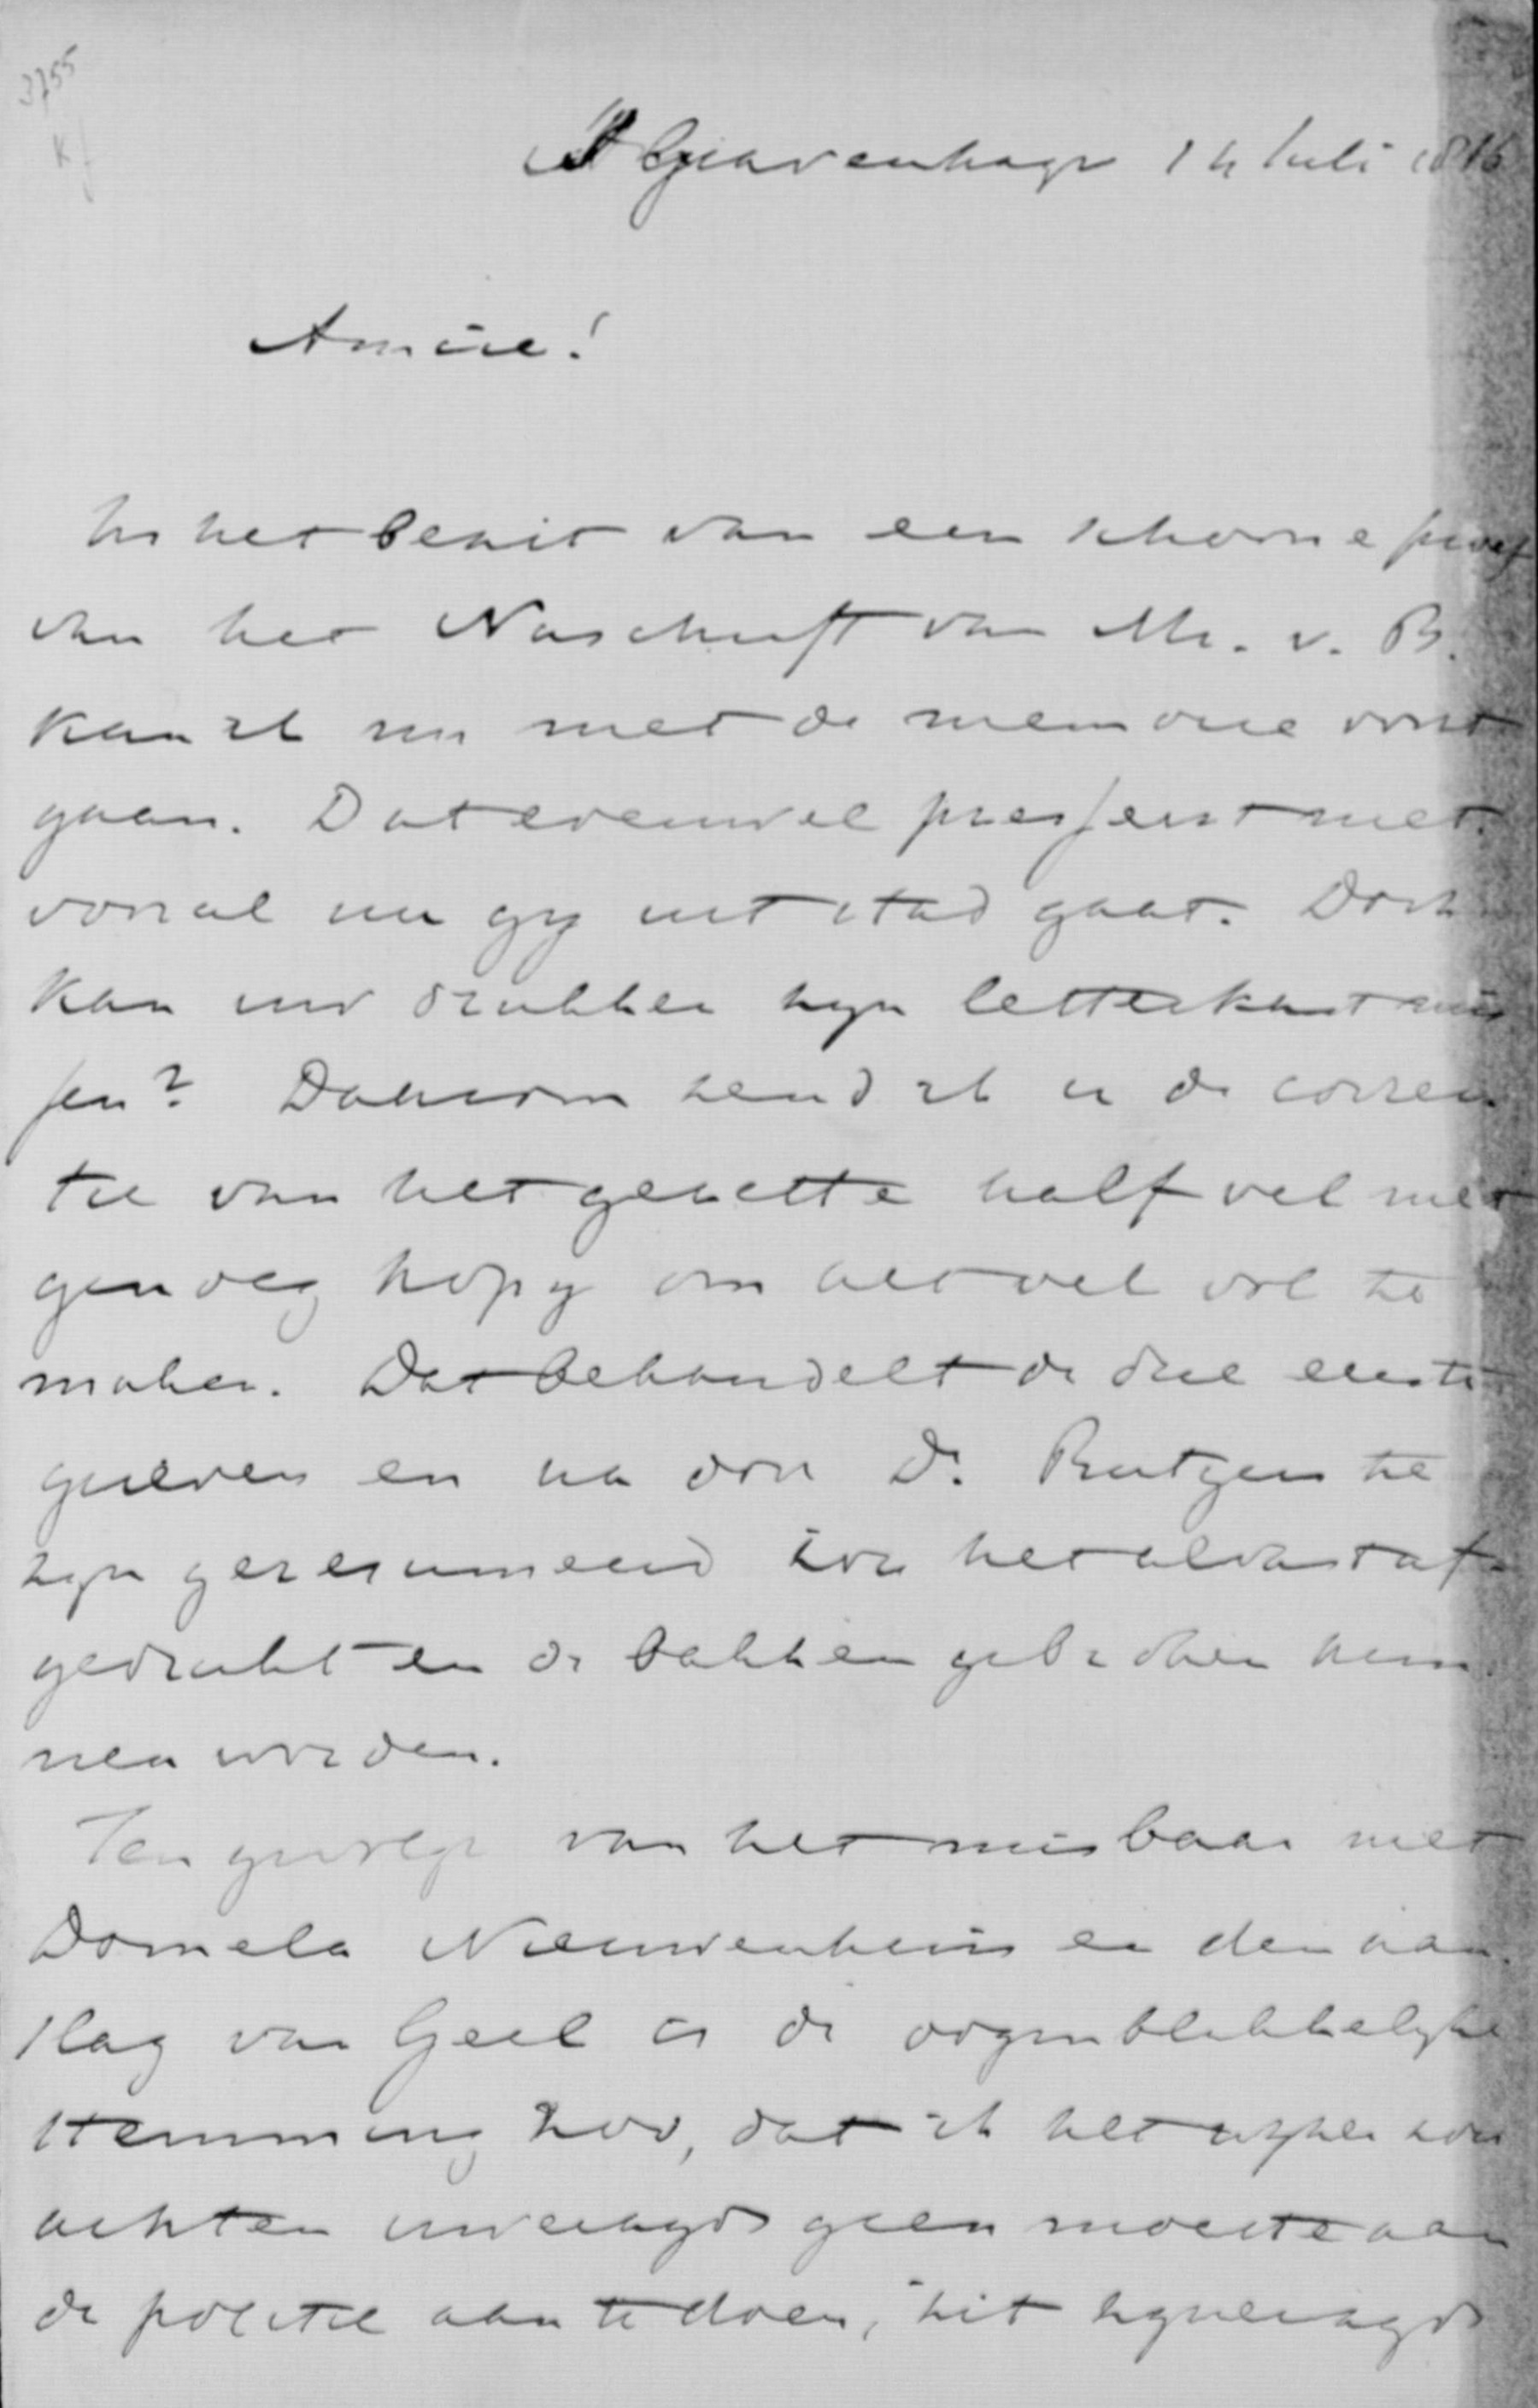 3755
K
's Gravenhage 14 Juli 1886
Amice!
In het bezit van een schoone proef
van het Naschrift van Mr. v. B.
kan ik nu met de memorie voort
gaan. Dat evenwel presseert niet.
vooral nu gy uit stad gaat. Doch
kan uw drukker zyn letterkast mis
sen? Daarom zend ik u de correc
tie van het gezette half vel met
genoeg kopy om het vel vol te
maken. Dat behandelt de drie eerste
grieven en na door Dr. Rutgers te
zyn geresumeerd zou het alvast af
gedrukt en de bakken gebroken kun
nen worden.
Ten gevolge van het misbaar met
Domela Nieuwenhuis en den aan
slag van Geel is de oogenblikkelyke
stemming zoo, dat ik het zou
achten uwerzyds geen moeite aan
de politie aan te doen, hit zynerzyds